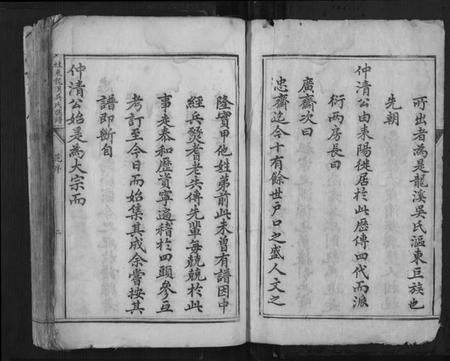 所出者為是龍溪吳氏漚東巨族也
先朝
仲清公由耒陽徙居於此歷傳四代而派
衍兩房長曰
廣齋次曰
忠齋迄今十有餘世戶口之盛人文之
隆實甲他姓第前此未曾有譜因中
經兵燹耆老共傳先輩每兢兢於此
事走泰和歷資寧遍稽於四頭參互
考訂至今日而始集其成余嘗按其
譜即斷自
仲清公始是為大宗而
龍溪吳氏
二